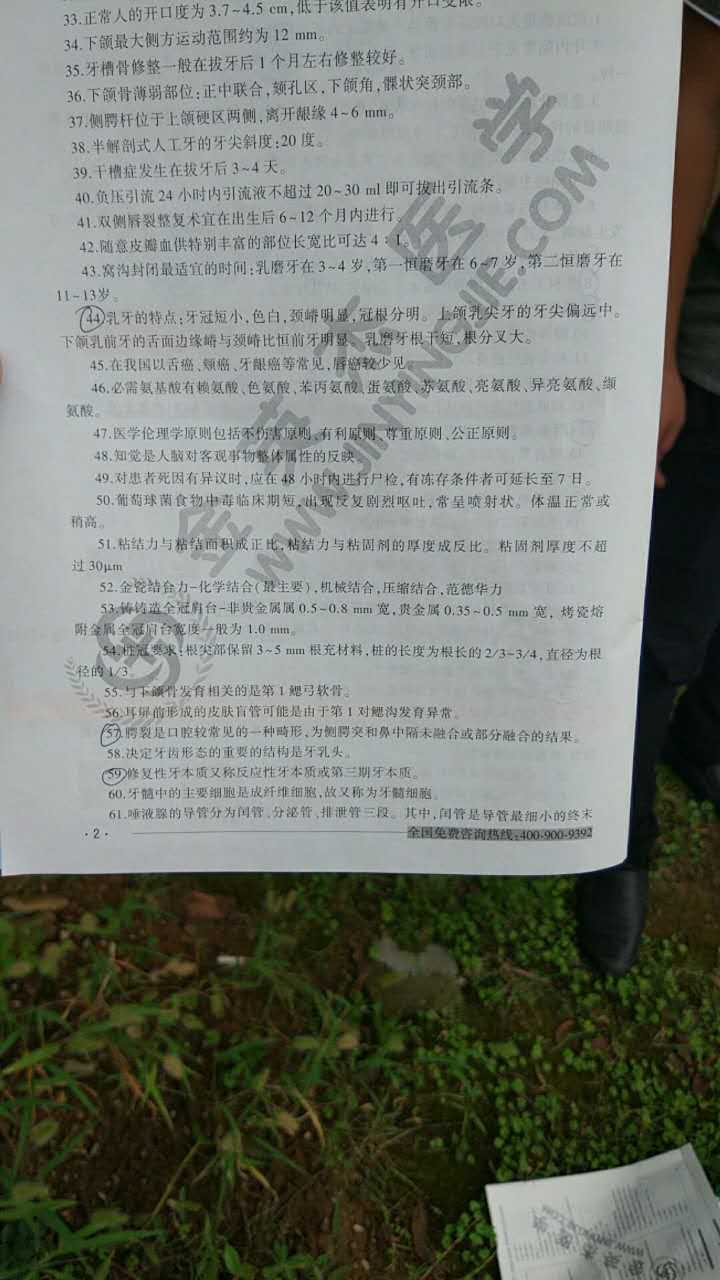 33.正常人的开口度为 3.7~4.5 cm,低于该值表明有开口受限。
34.下颌最大侧方运动范围约为 12 mm。
35.牙槽骨修整一般在拔牙后 1 个月左右修整较好。
36.下颌骨薄弱部位:正中联合,颏孔区,下颌角,髁状突颈部。
37.侧腭杆位于上颌硬区两侧,离开龈缘 4~6 mm。
38.半解剖式人工牙的牙尖斜度:20 度。
39.干槽症发生在拔牙后 3~4 天。
40.负压引流 24 小时内引流液不超过 20~30 ml 即可拔出引流条。
41.双侧唇裂整复术宜在出生后 6~12 个月内进行。
42.随意皮瓣血供特别丰富的部位长宽比可达 4∶1。
43.窝沟封闭最适宜的时间:乳磨牙在 3~4 岁,第一恒磨牙在 6~7 岁,第二恒磨牙在
11~13岁。
44.乳牙的特点:牙冠短小,色白,颈嵴明显,冠根分明。上颌乳尖牙的牙尖偏远中。
下颌乳前牙的舌面边缘嵴与颈嵴比恒前牙明显。乳磨牙根干短,根分叉大。
45.在我国以舌癌、颊癌、牙龈癌等常见,唇癌较少见。
46.必需氨基酸有赖氨酸、色氨酸、苯丙氨酸、蛋氨酸、苏氨酸、亮氨酸、异亮氨酸、缬
氨酸。
47.医学伦理学原则包括不伤害原则、有利原则、尊重原则、公正原则。
48.知觉是人脑对客观事物整体属性的反映。
49.对患者死因有异议时,应在 48 小时内进行尸检,有冻存条件者可延长至 7 日。
50.葡萄球菌食物中毒临床期短,出现反复剧烈呕吐,常呈喷射状。体温正常或
稍高。
51.粘结力与粘结面积成正比,粘结力与粘固剂的厚度成反比。粘固剂厚度不超
过 30μm
52.金瓷结合力-化学结合(最主要),机械结合,压缩结合,范德华力
53.铸铸造全冠肩台-非贵金属属 0.5~0.8 mm 宽,贵金属 0.35~0.5 mm 宽, 烤瓷熔
附金属全冠肩台宽度一般为 1.0 mm。
54.桩冠要求:根尖部保留 3~5 mm 根充材料,桩的长度为根长的 2/3~3/4,直径为根
径的 1/3
55.与下颌骨发育相关的是第 1 鳃弓软骨。
56.耳屏前形成的皮肤盲管可能是由于第 1 对鳃沟发育异常。
57.腭裂是口腔较常见的一种畸形,为侧腭突和鼻中隔未融合或部分融合的结果。
58.决定牙齿形态的重要的结构是牙乳头。
59.修复性牙本质又称反应性牙本质或第三期牙本质。
60.牙髓中的主要细胞是成纤维细胞,故又称为牙髓细胞。
61.唾液腺的导管分为闰管、分泌管、排泄管三段。其中,闰管是导管最细小的终末
·2·
全国免费咨询热线:400-900-9392
金英杰医学
WWW.JINYINGJIE.COM